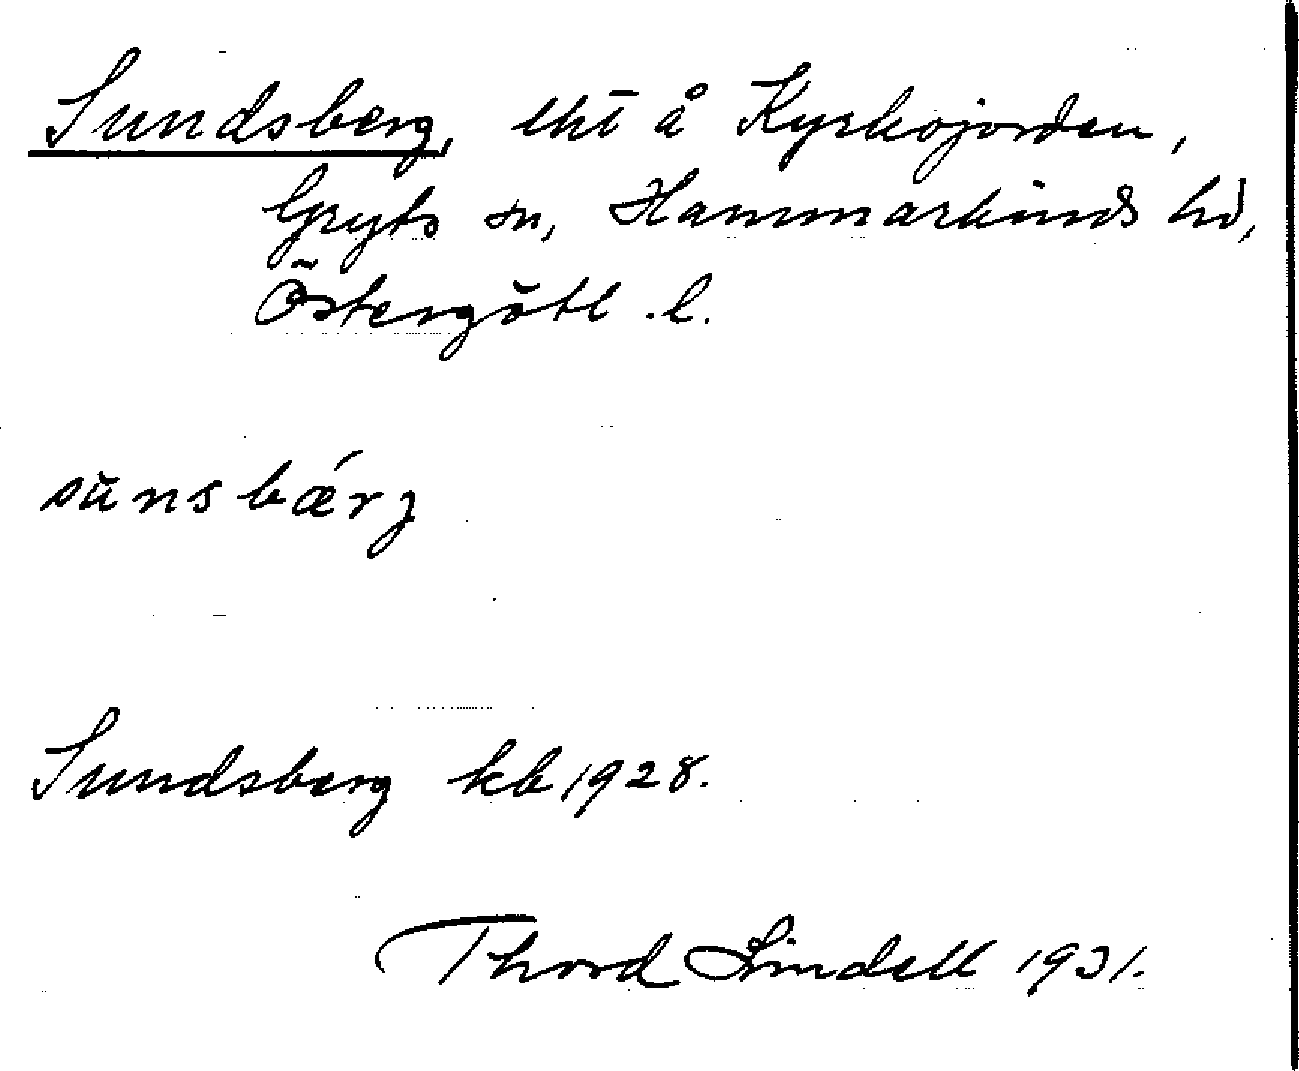 Sundsberg, lht å Kyrkojorden,
Gryts sn, Hammarkinds hd,
Östergötl. l.
sŭnsbǽrj
Sundsberg kb 1928.
Thord Lindell 1931.